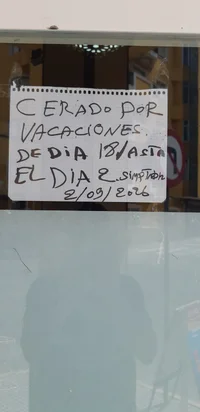 CERADO POR
VACACIONES.
DE DiA 18/ASTA
EL DIA 2
2/09/2026